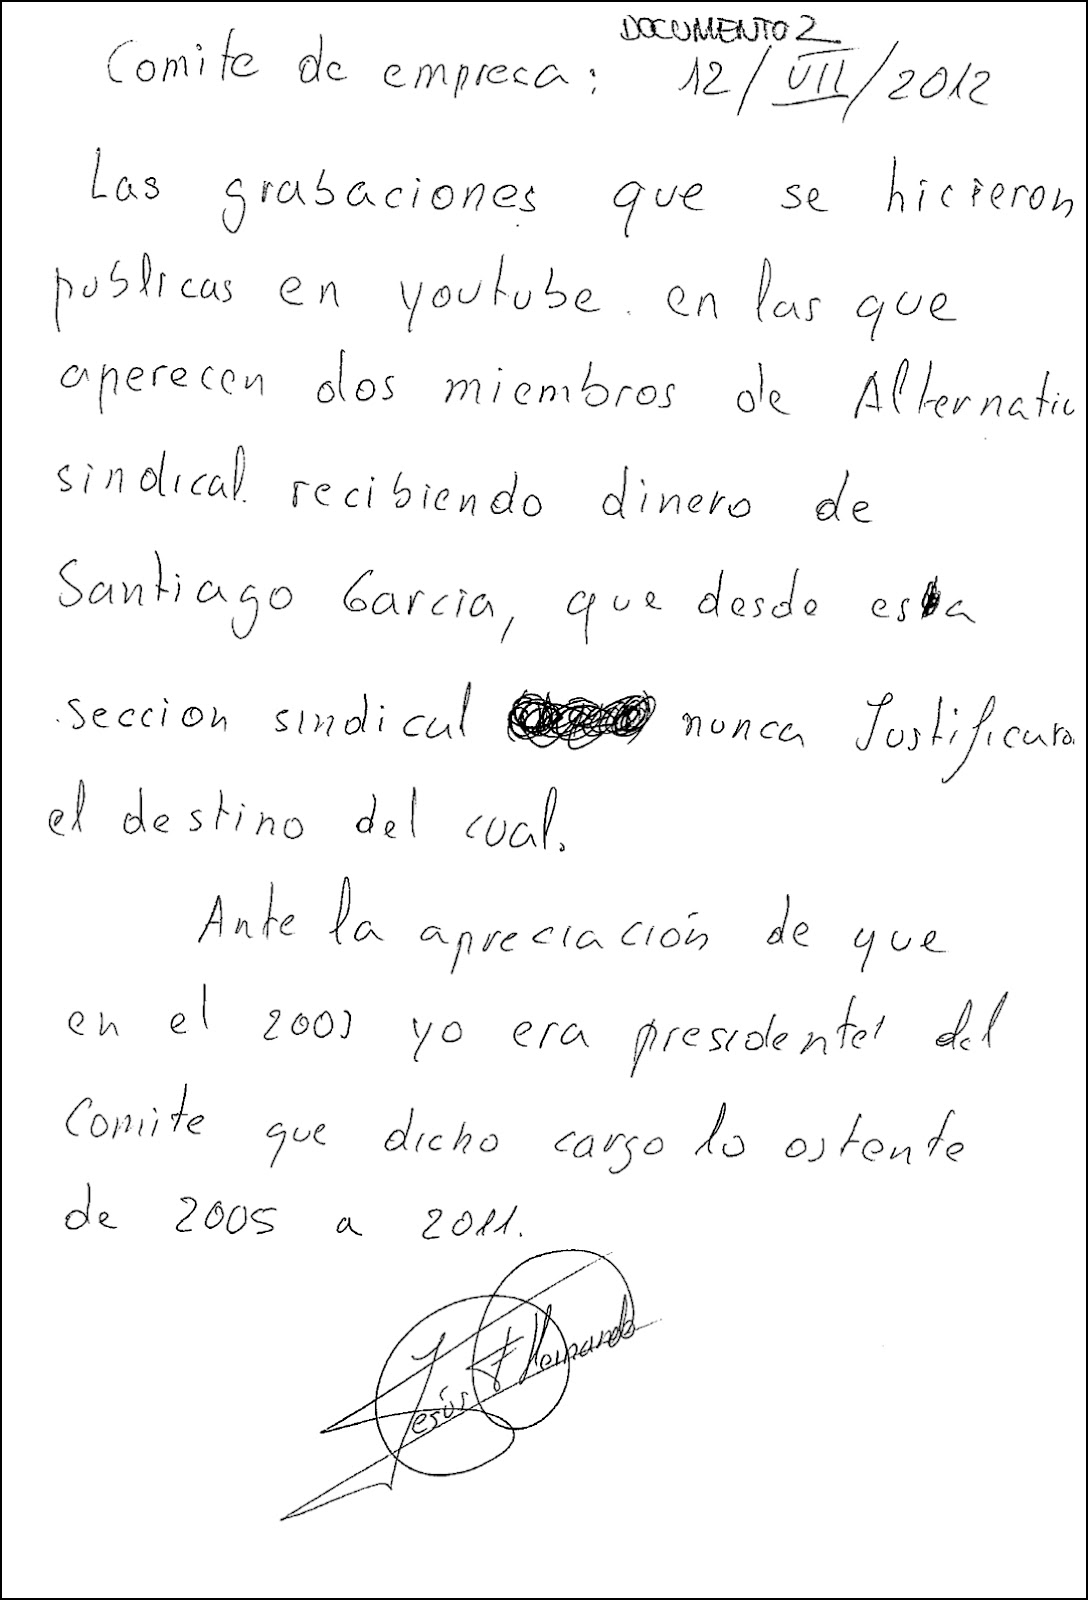 DOCUMENTO 2
Comite de empresa: 12/VII/2012
Las grabaciones que se hicieron
publicas en youtube. en las que
aperecen dos miembros de Alternativ
sindical. recibiendo dinero de
Santiago Garcia, que desde esta
seccion sindical nunca Justificaro
el destino del cual.
Ante la apreciación de que
en el 2003 yo era presidente del
Comite que dicho cargo lo ostente
de 2005 a 2011.
Jesús F Hernando